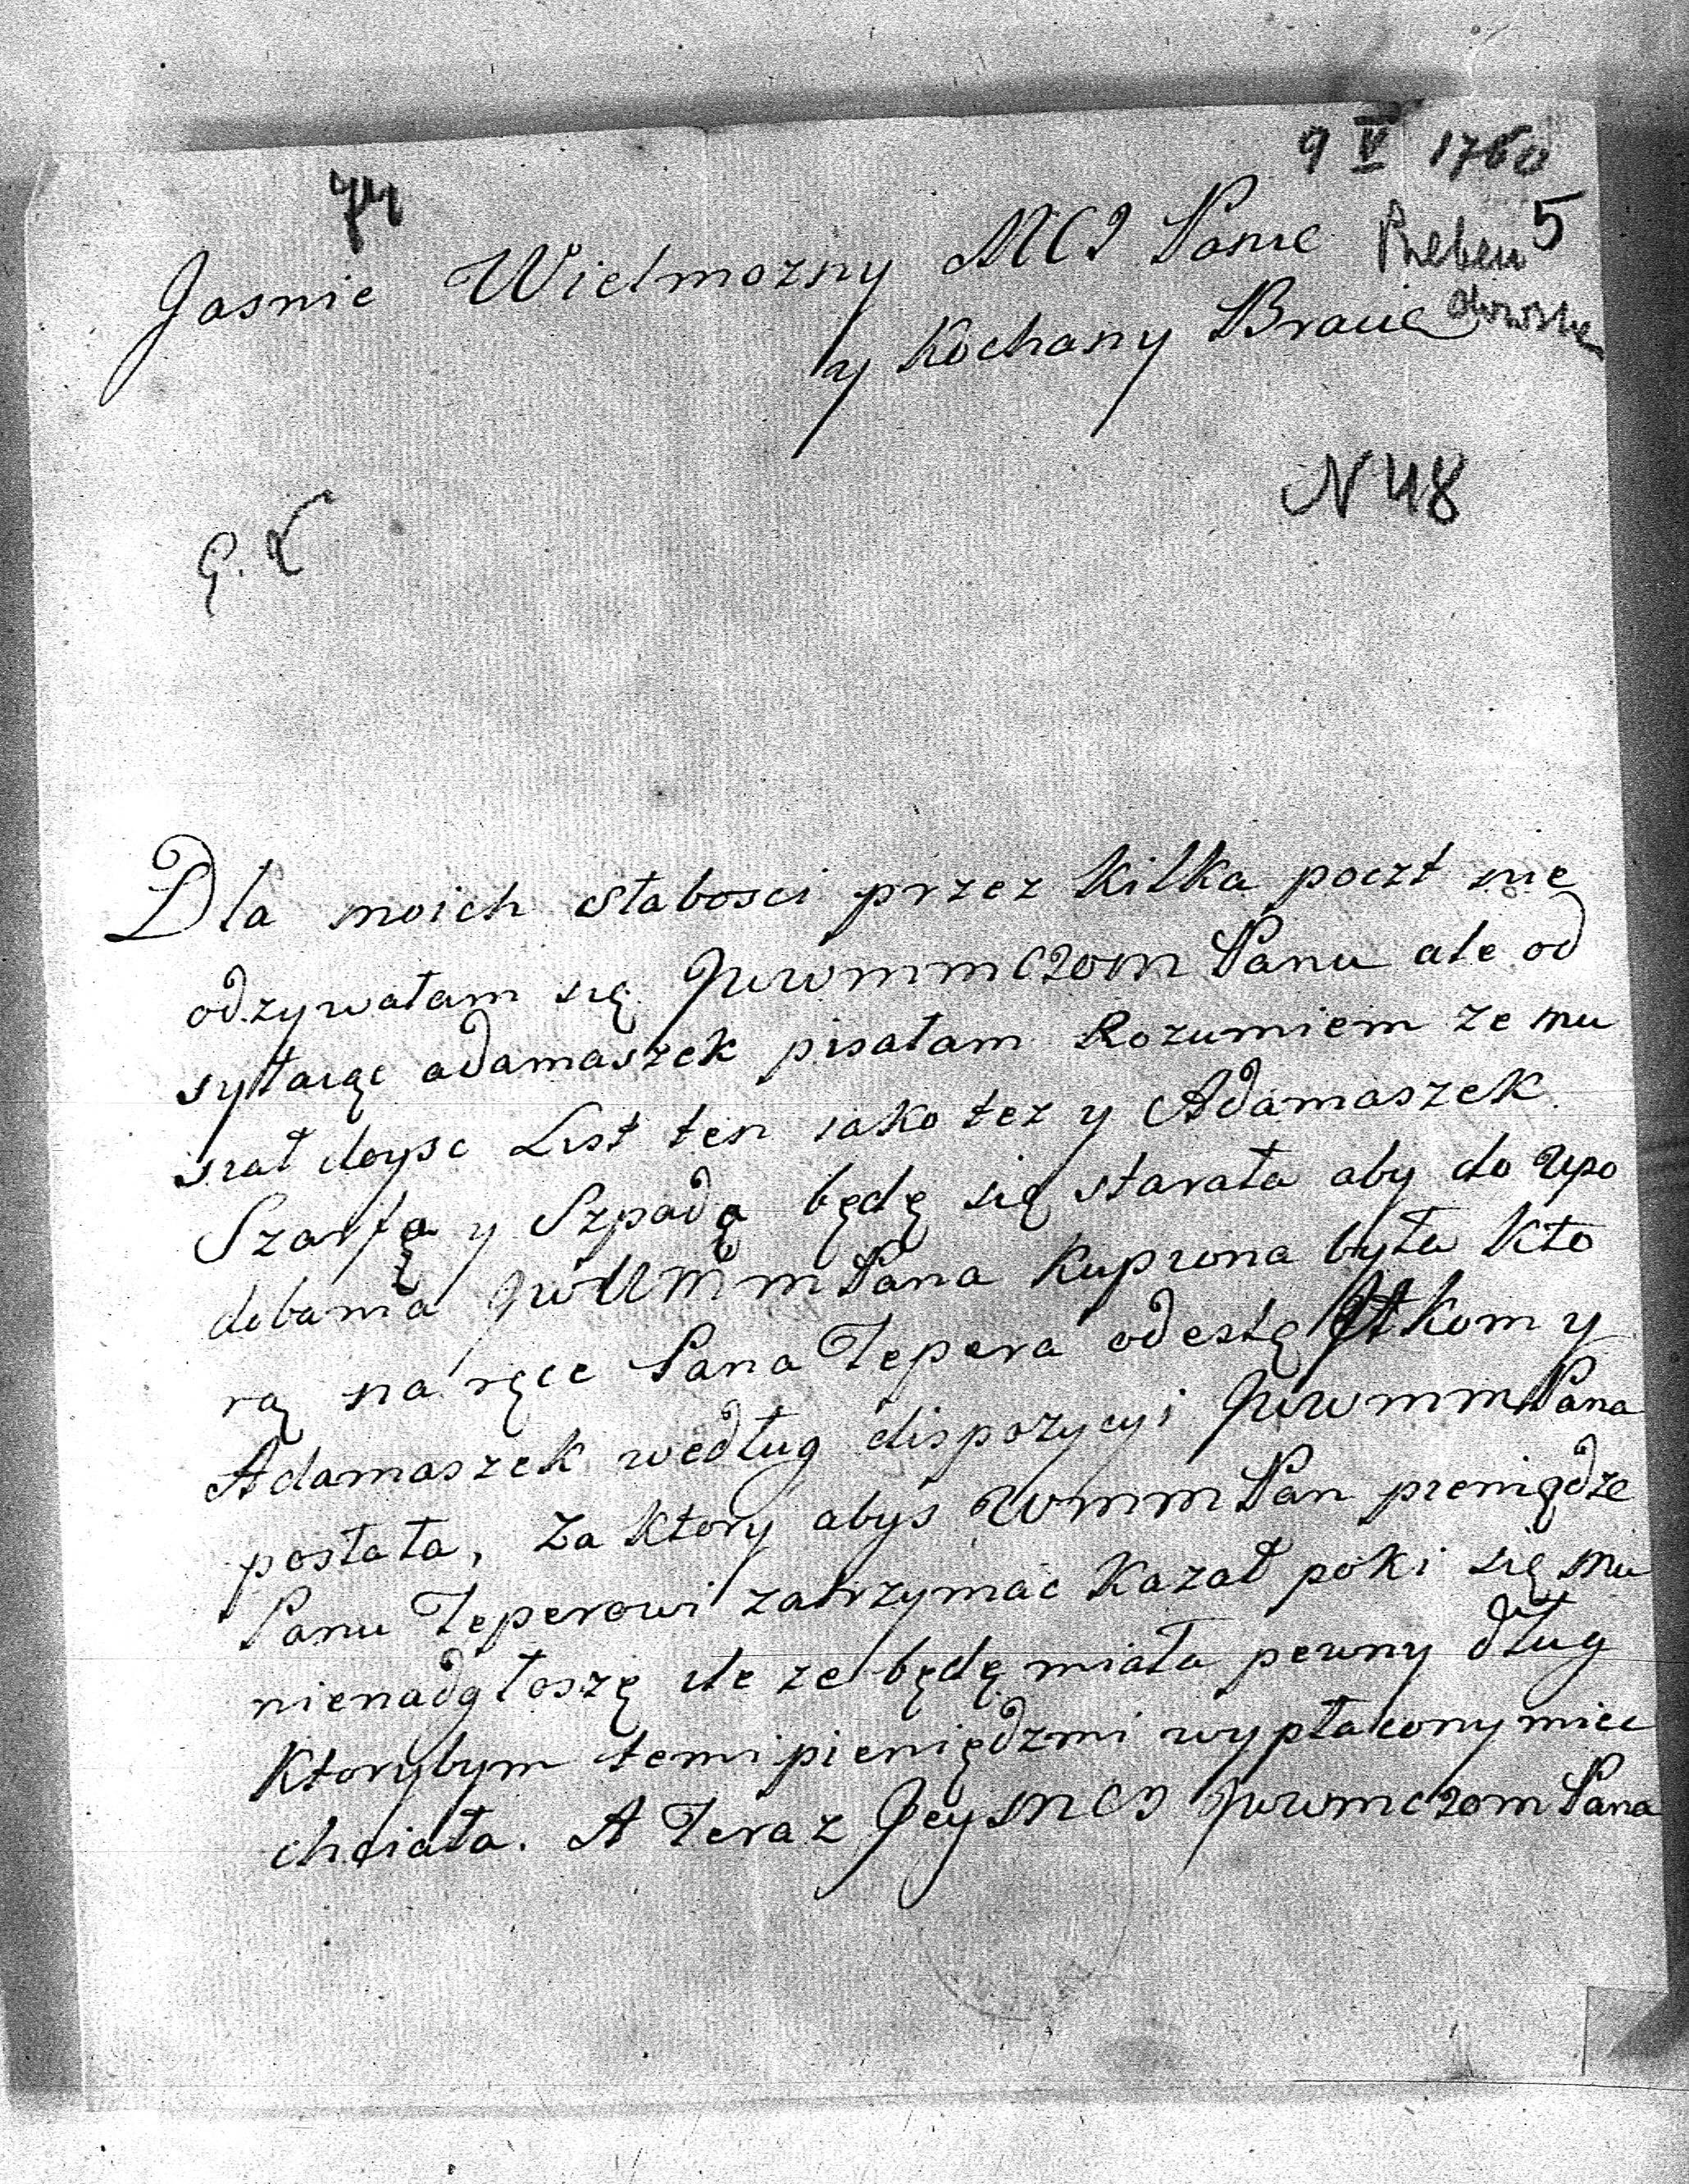 9 V 1760
74
5
Jasnie Wielmozny MCJ Panie
y Kochany Bracie
N 48
Dla moich słabosci przez kilka poczt nie
odzywałam się JWWMMCZOM Panu ale od
syłaiąc adamaszek pisałam Rozumiem ze mu
siał doysc List ten iako tez y Adamaszek.
Szarfa y Szpadą będę się starała aby do upo
dobania JWWMM Pana kupiona była kto
rą na ręce Pana Tepera odeslę y
Adamaszek według dispozycyi JWWMM Pana
posłała, za ktory abys WMM Pan pieniądze
Panu Teperowi zatrzymac kazał poki się mu
nienadgłoszę ile ze będę miała pewny dług
ktorybym temi pieniędzmi wypłacony miec
chciała. A Teraz Jey MCJ JWWMCZOM Pana